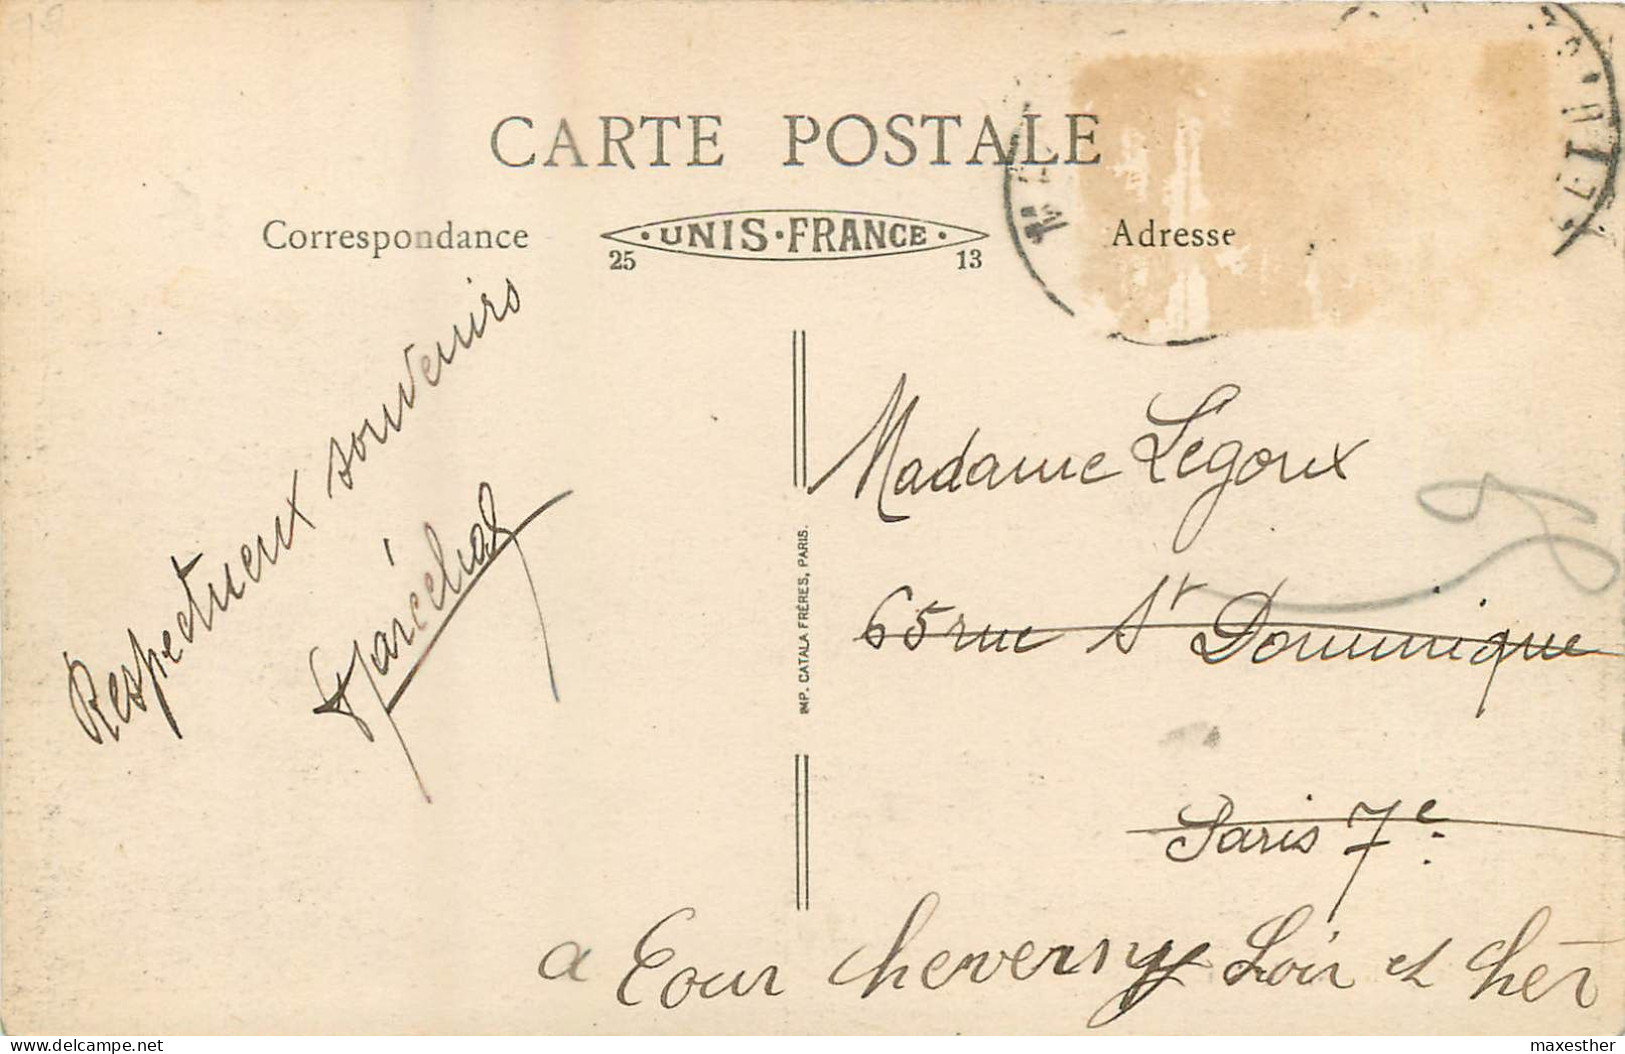 CARTE POSTALE
Correspondance
UNIS·FRANCE
25 13
Adresse
Respectueux souvenirs
IMP. CATALA FRÈRES, PARIS.
Madame Legoux
65 rue St Dominique
Paris 7e
a Cour Cheverny Loir et Cher
www.delcampe.net
maxesther